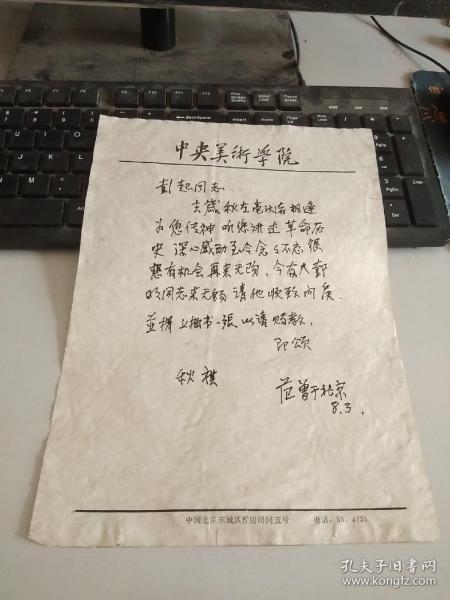 中央美術学院
彭起同志
去歲秋在亳次言相逢
为您传神听您讲述革命历
史深心感动至今念念不忘很
想有机会再来无
同志来无锡请他顺致问候
並拙书一张以请赐教
即颂
秋祺
范曾于北京
8.3.
中国北京东城区校尉胡同五号 电话:55.4731
孔夫子旧书网
www.kongfz.com